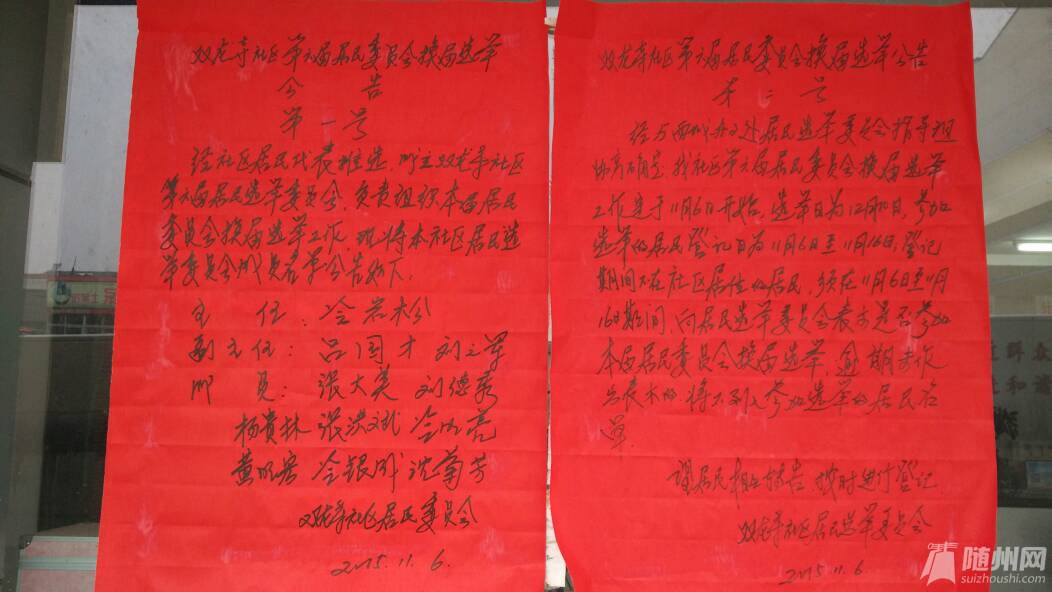 双龙寺社区第六届居民委员会换届选举
公告
第一号
经社区居民代表推选，成立双龙寺社区
第六届居民选举委员会，负责组织本届居民
委员会换届选举工作，现将本社区居民选
举委员会成员名单公告如下。
主 任：冷若松
副主任：吕国才 刘立军
成 员：张大英 刘德秀
杨贵林 张洪斌 冷成亮
黄明宏 冷银成 沈菊芳
双龙寺社区居民委员会
2015.11.6.
双龙寺社区第六届居民委员会换届选举公告
第二号
经与西城办事处居民选举委员会指导组
协商确定，我社区第六届居民委员会换届选举
工作定于11月6日开始，选举日为12月10日，参加
选举的居民登记日为11月6日至11月16日，登记
期间不在社区居住的居民，须在11月6日至11月
16日期间，向居民选举委员会表示是否参加
本届居民委员会换届选举，逾期未作
出表示的，将不列入参加选举的居民名
单。
望居民相互转告，按时进行登记
双龙寺社区居民选举委员会
2015.11.6
群众
和谐
随州网
suizhoushi.com